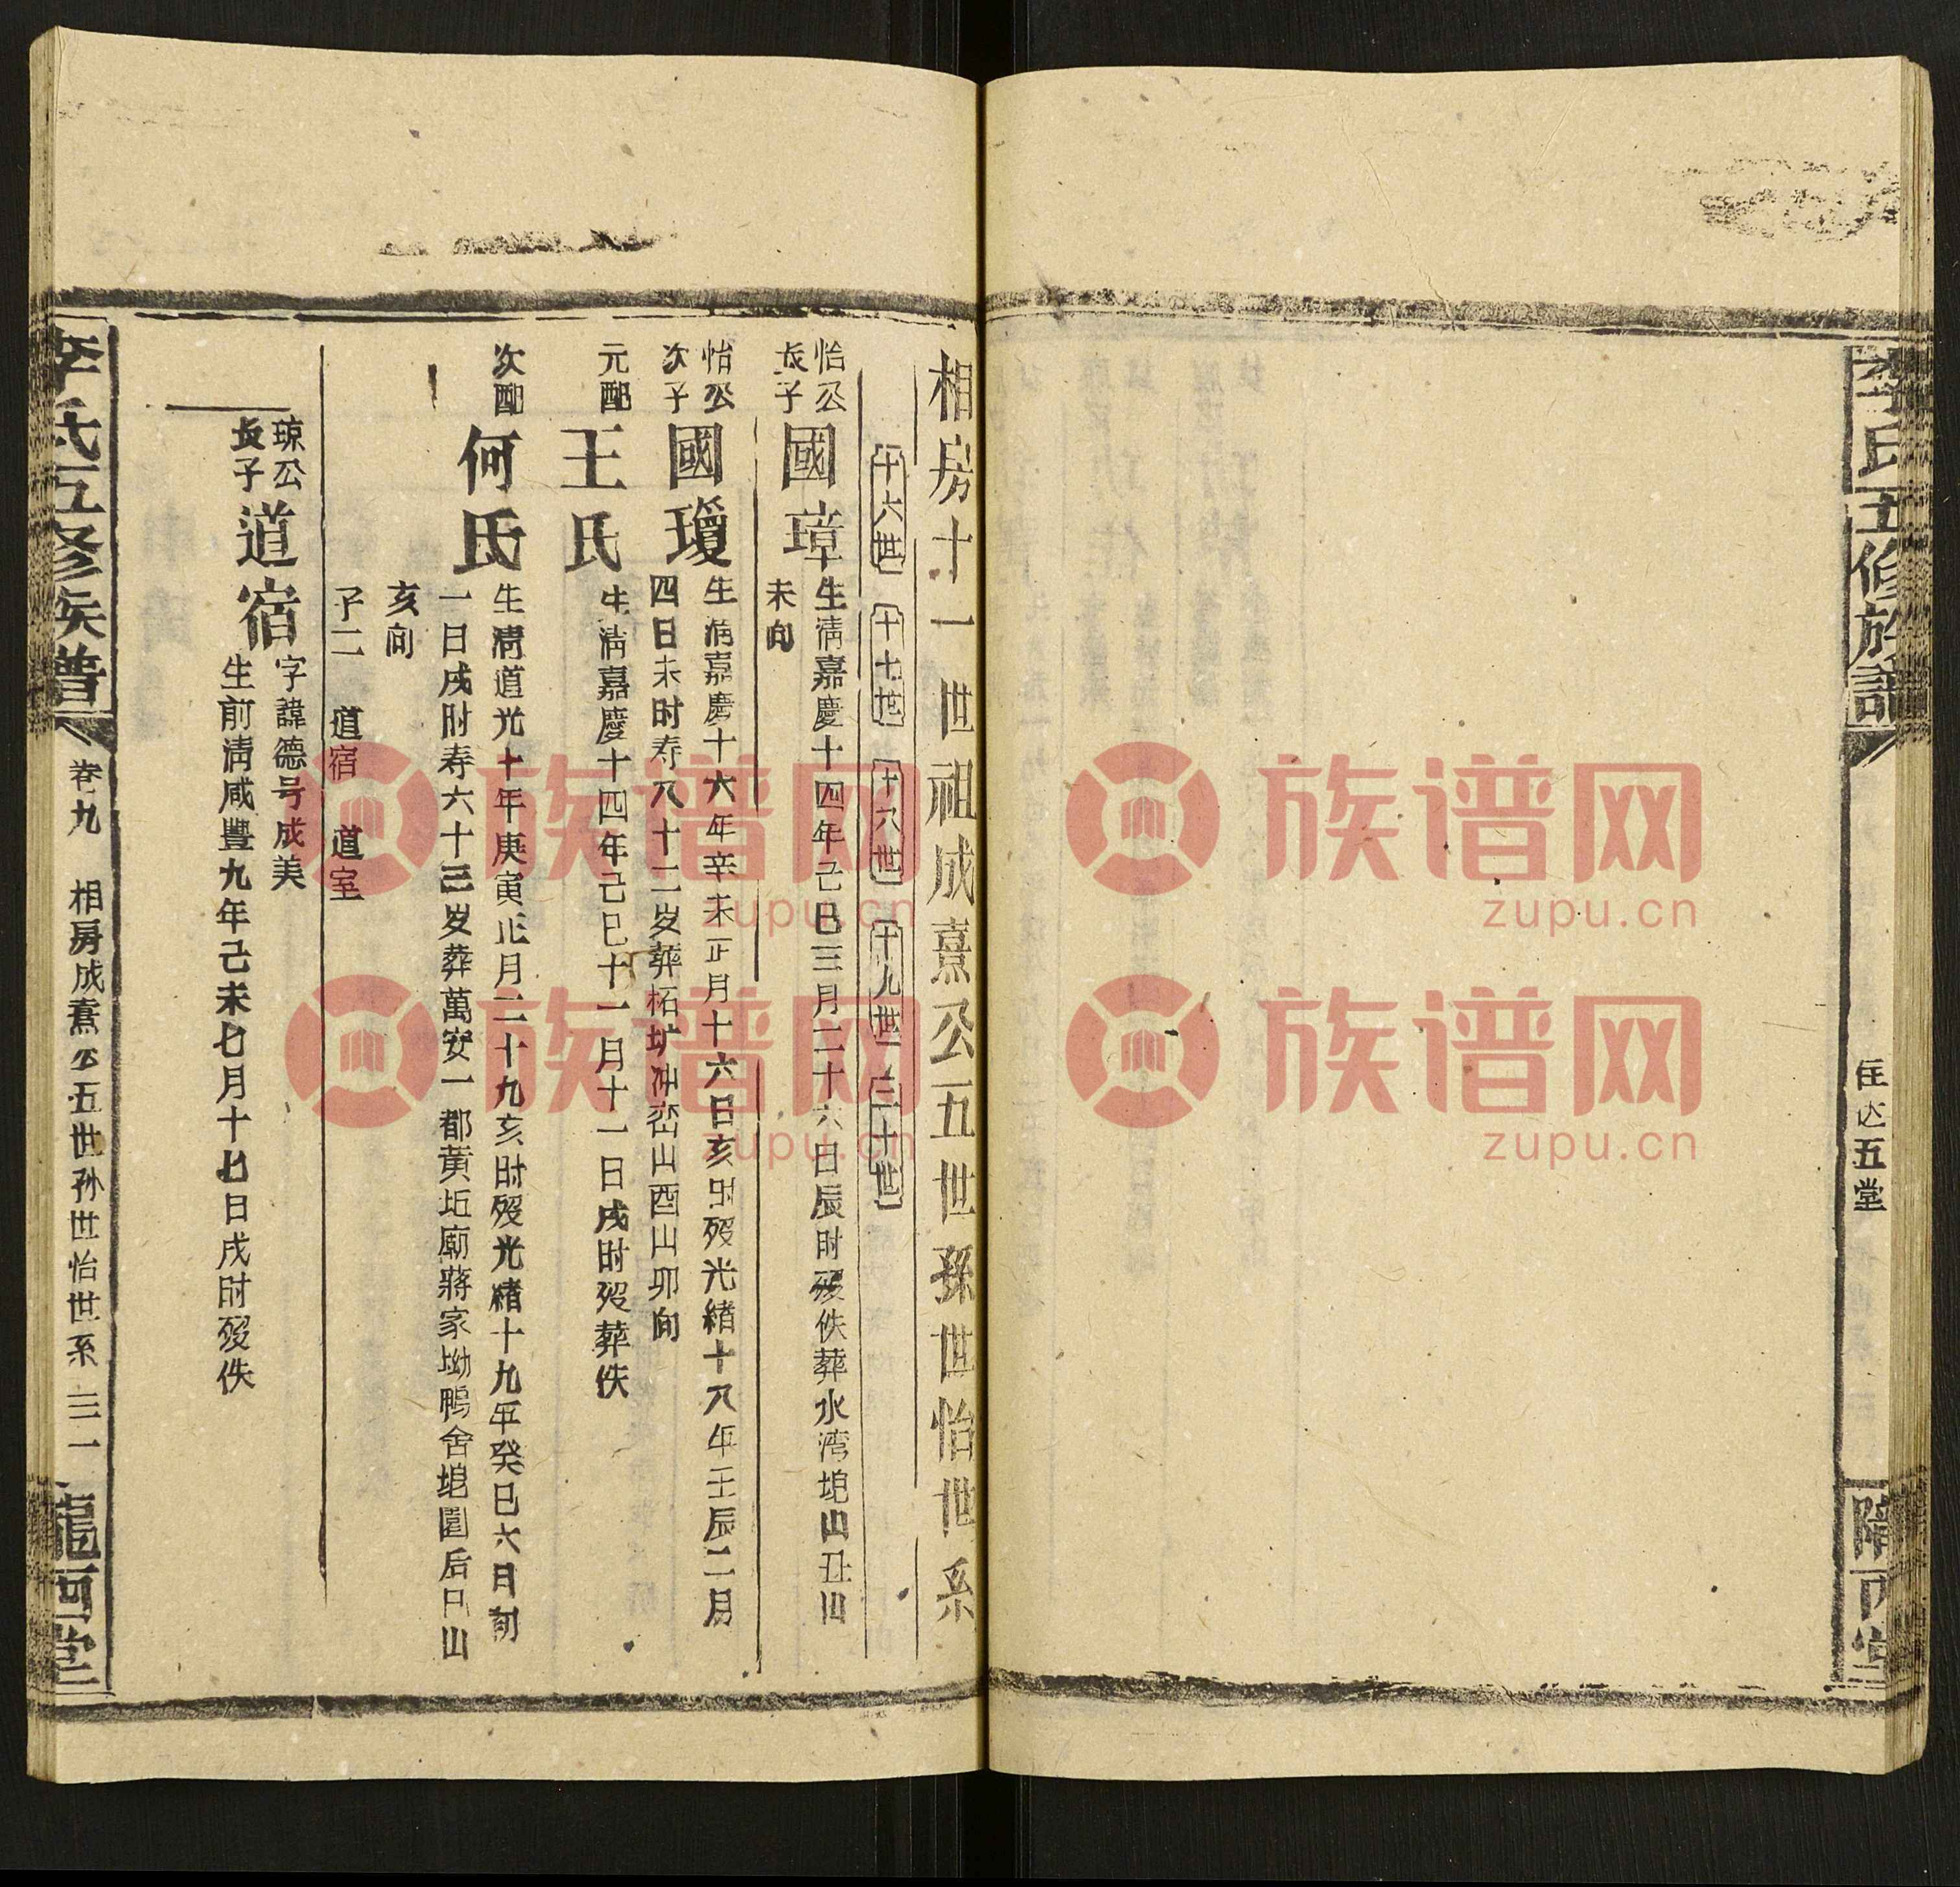 李氏五修族譜
五堂
相房十一世祖成熹公五世孫世怡世系
十六世 十七世 十八世 十九世 二十世
怡公
長子
國璋
生清嘉慶十四年己巳三月二十六日辰时殁佚葬水湾塊山丑山
未向
怡公
次子
國瓊
生清嘉慶十六年辛未正月十六日亥时殁光緒十八年壬辰二月
四日未时寿八十二岁葬柘圹冲峦山酉山卯向
元配
王氏
生清嘉慶十四年己巳十一月十一日戌时殁葬佚
次配
何氏
生清道光十年庚寅正月二十九亥时殁光緒十九年癸巳六月初
一日戌时寿六十三岁葬萬安一都黄坵廟蔣家坳鴨舍塊園后巳山
亥向
子二 道宿 道室
琼公
長子
道宿
字諱德号成美
生前清咸豐九年己未七月十七日戌时殁佚
李氏五修族譜
卷九 相房成熹公五世孙世怡世系 三一
隴西堂
族谱网
zupu.cn
族谱网
zupu.cn
族谱网
zupu.cn
族谱网
zupu.cn